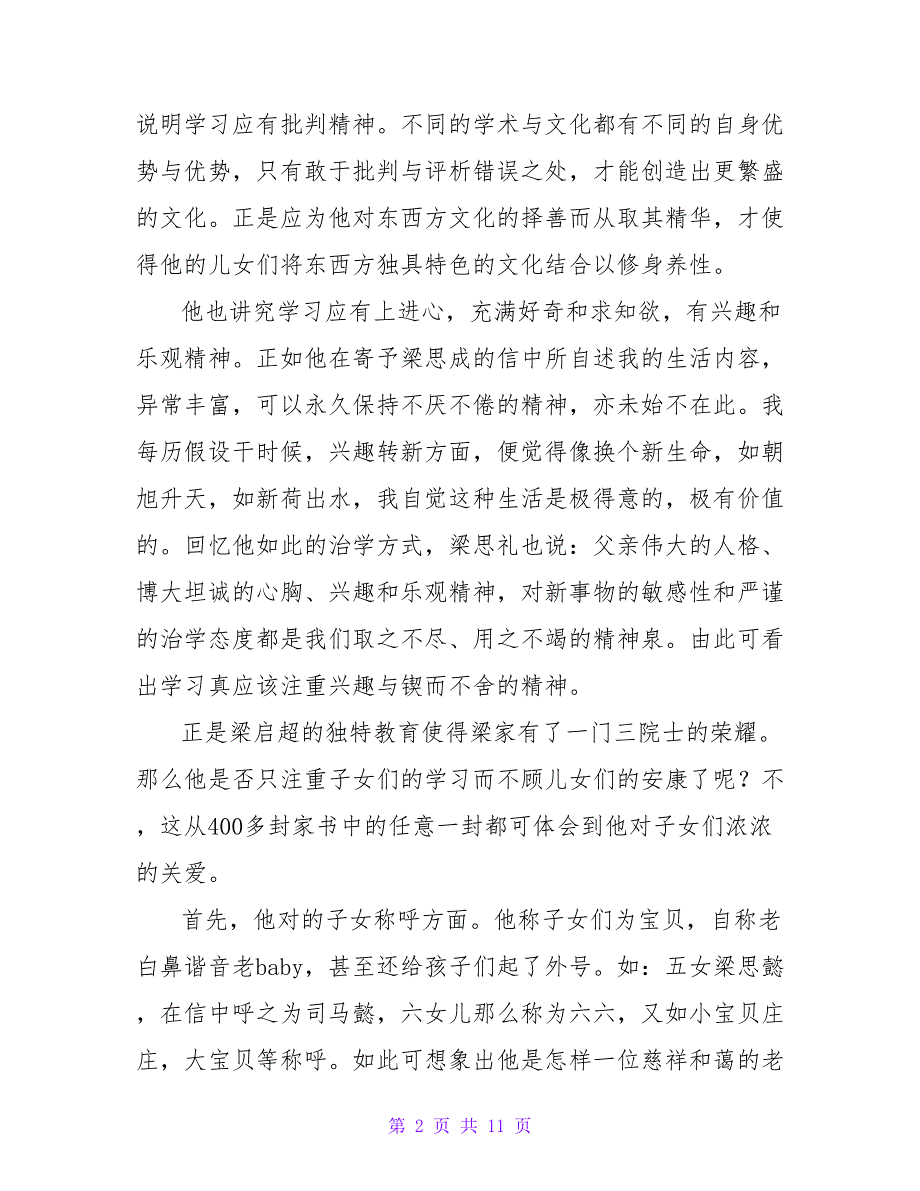 说明学习应有批判精神。不同的学术与文化都有不同的自身优
势与优势，只有敢于批判与评析错误之处，才能创造出更繁盛
的文化。正是应为他对东西方文化的择善而从取其精华，才使
得他的儿女们将东西方独具特色的文化结合以修身养性。
他也讲究学习应有上进心，充满好奇和求知欲，有兴趣和
乐观精神。正如他在寄予梁思成的信中所自述我的生活内容，
异常丰富，可以永久保持不厌不倦的精神，亦未始不在此。我
每历假设干时候，兴趣转新方面，便觉得像换个新生命，如朝
旭升天，如新荷出水，我自觉这种生活是极得意的，极有价值
的。回忆他如此的治学方式，梁思礼也说：父亲伟大的人格、
博大坦诚的心胸、兴趣和乐观精神，对新事物的敏感性和严谨
的治学态度都是我们取之不尽、用之不竭的精神泉。由此可看
出学习真应该注重兴趣与锲而不舍的精神。
正是梁启超的独特教育使得梁家有了一门三院士的荣耀。
那么他是否只注重子女们的学习而不顾儿女们的安康了呢？不
，这从400多封家书中的任意一封都可体会到他对子女们浓浓
的关爱。
首先，他对的子女称呼方面。他称子女们为宝贝，自称老
白鼻谐音老baby，甚至还给孩子们起了外号。如：五女梁思懿
，在信中呼之为司马懿，六女儿那么称为六六，又如小宝贝庄
庄，大宝贝等称呼。如此可想象出他是怎样一位慈祥和蔼的老
第 2 页 共 11 页